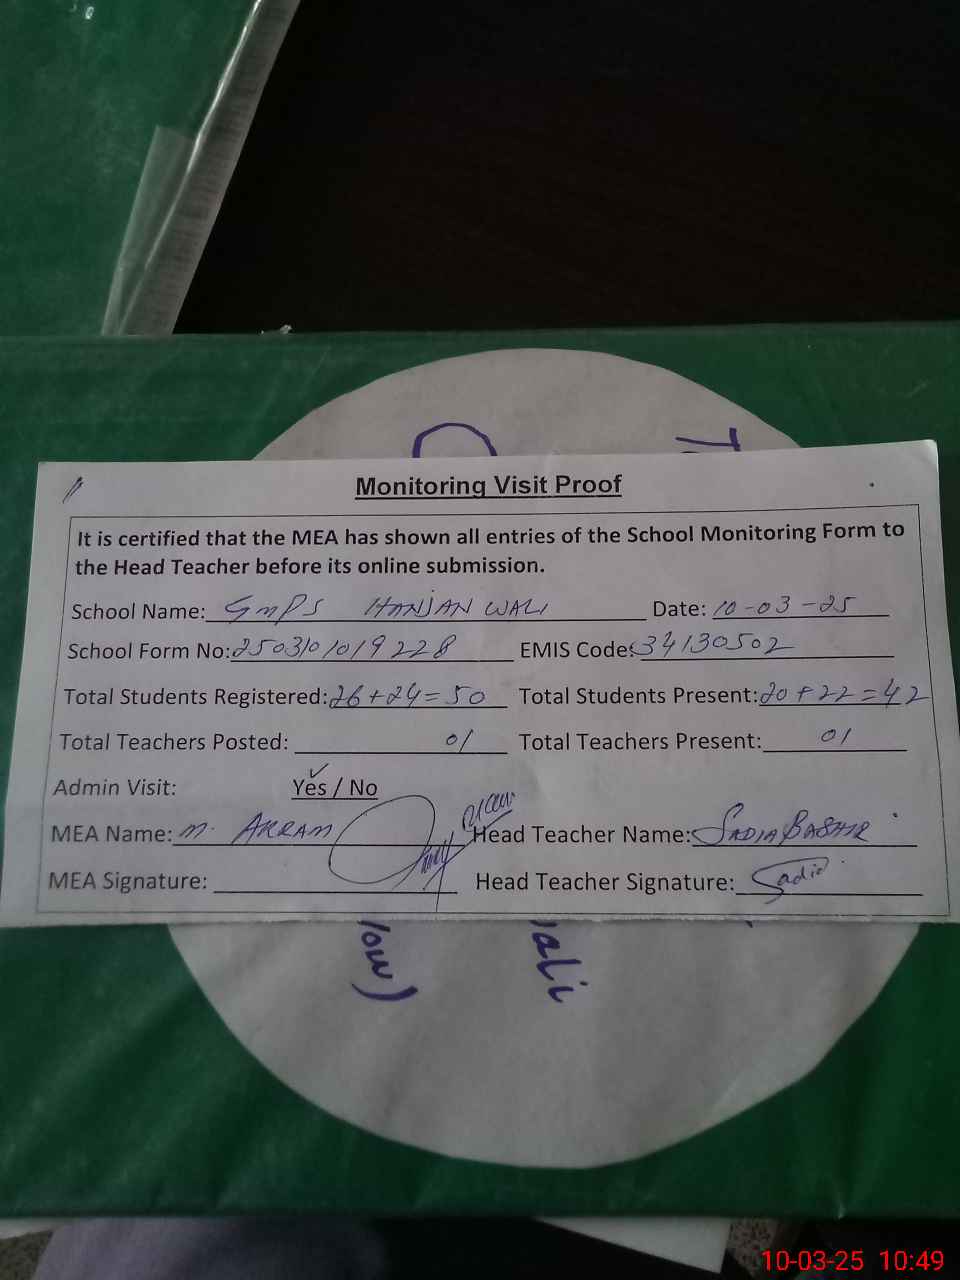 Monitoring Visit Proof
It is certified that the MEA has shown all entries of the School Monitoring Form to
the Head Teacher before its online submission.
School Name: GMPS HANJAN WALI Date: 10-03-25
School Form No: 2503101019228 EMIS Code: 34130502
Total Students Registered: 26+24=50 Total Students Present: 20+22=42
Total Teachers Posted: 01 Total Teachers Present: 01
Admin Visit: Yes / No
MEA Name: M. AKRAM Head Teacher Name: SADIA BASHIR
MEA Signature: Head Teacher Signature: Sadia
wali
low)
10-03-25 10:49